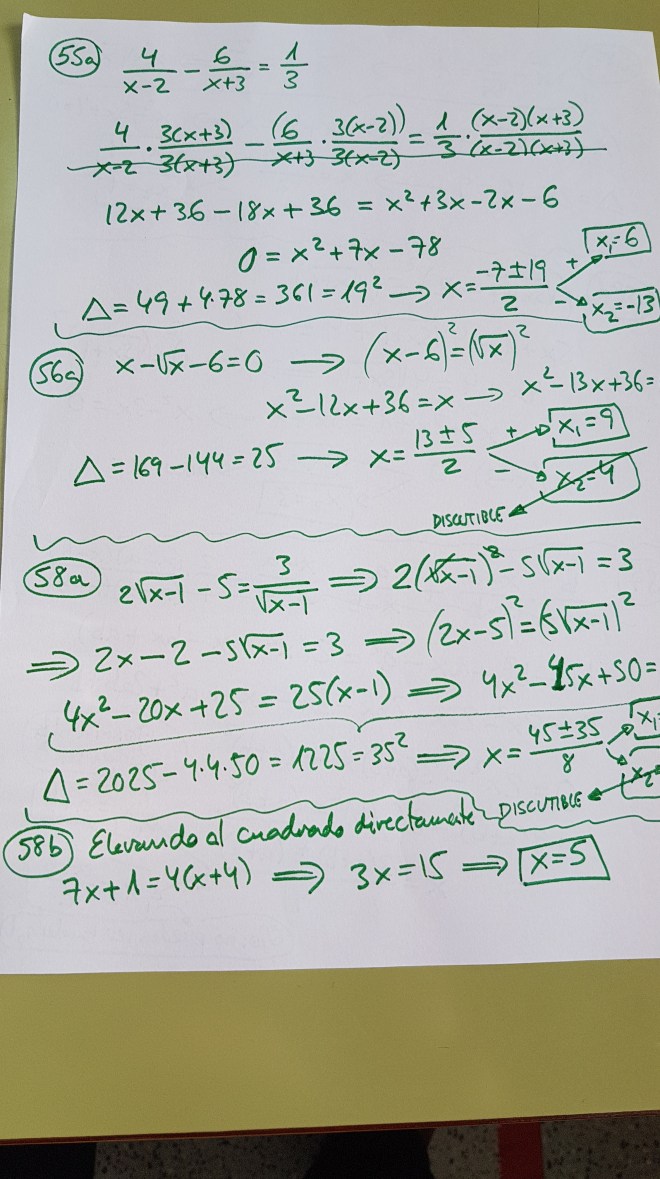 55a 4/(x-2) - 6/(x+3) = 1/3
4/(x-2) · 3(x+3)/3(x+3) - (6/(x+3) · 3(x-2))/3(x-2) = 1/3 · (x-2)(x+3)/(x-2)(x+3)
12x+36-18x+36 = x²+3x-2x-6
0 = x²+7x-78
Δ=49+4.78=361=19² → x= (-7±19)/2 + x₁=6 - x₂=-13
56a x-√x-6=0 → (x-6)²=(√x)²
x²-12x+36=x → x²-13x+36=
Δ=169-144=25 → x= (13±5)/2 + x₁=9 - x₂=4
DISCUTIBLE
58a 2√x-1 - 5 = 3/√x-1 ⇒ 2(√x-1)² - 5√x-1 = 3
⇒ 2x-2-5√x-1 = 3 ⇒ (2x-5)²=(5√x-1)²
4x²-20x+25 = 25(x-1) ⇒ 4x²-45x+50=
Δ=2025-4.4.50=1225=35² ⇒ x= (45±35)/8 x₁= x₂
DISCUTIBLE
58b Elevando al cuadrado directamente
7x+1=4(x+4) ⇒ 3x=15 ⇒ x=5